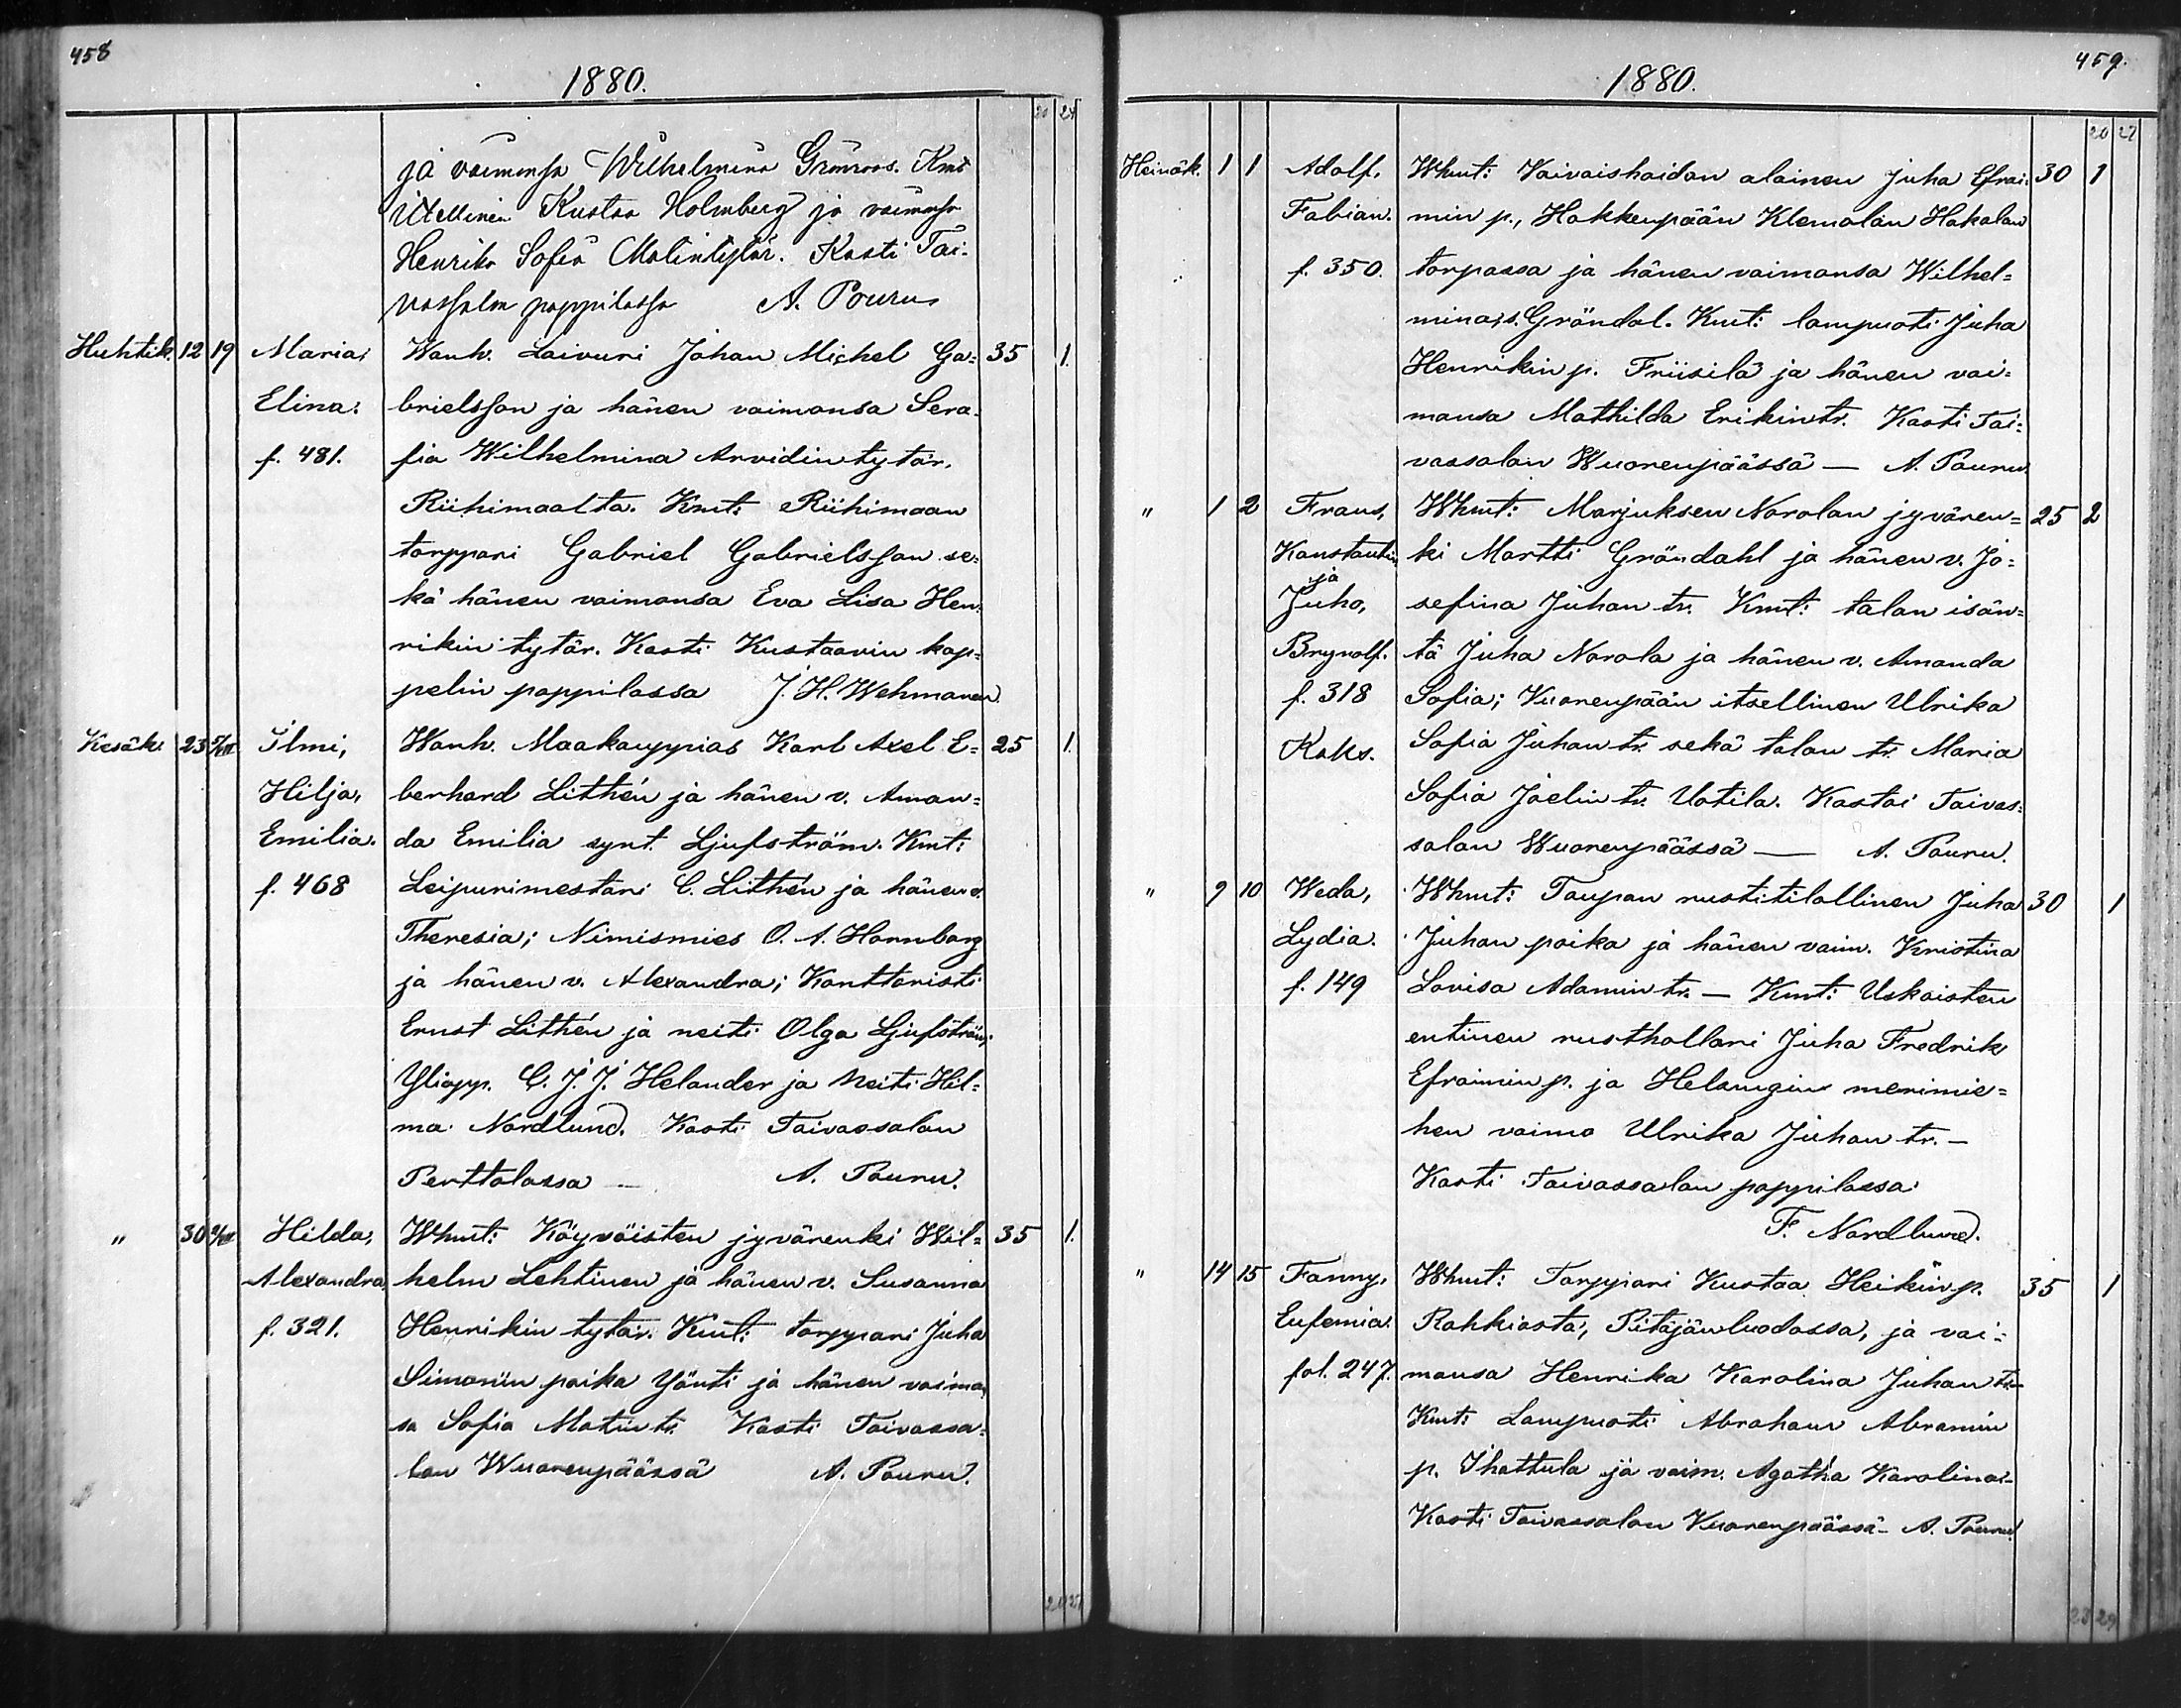 458
1880.
20 27
ja vaimonsa Wilhelmina Grönroos. Kmt
itsellinen Kustaa Holmberg ja vaimonsa
Henrika Sofia Matintytär. Kasti Tai-
vassalon pappilassa A. Pouru
Huhtik. 12 19 Maria, Wanh. Laivuri Johan Michel Ga= 35 1.
Elina. brielsson ja hänen vaimonsa Sera-
f. 481. fia Wilhelmina Arvidin tytär,
Riihimaalta. Kmt: Riihimaan
torppari Gabriel Gabrielsson se-
kä hänen vaimonsa Eva Lisa Hen-
rikin tytär. Kasti Kustaavin kap-
pelin pappilassa J. H. Wehmanen.
Kesäk. 23 5/VII Ilmi, Wanh. Maakauppias Karl Axel E= 25 1.
Hilja, berhard Lithén ja hänen v. Aman=
Emilia. da Emilia synt. Ljufström. Kmt:
f. 468 Leipurimestari C. Lithén ja hänen v.
Theresia; Nimismies O. A. Hornborg
ja hänen v. Alexandra; Konttoristi
Ernst Lithén ja neiti Olga Ljufström;
Yliopp. C. J. J. Helander ja Neiti Hil=
ma Nordlund. Kasti Taivassalon
Perttolassa — A. Pouru.
" 30 Hilda, Whmt: Köyvöisten jyvärenki Wil= 35 1.
Alexandra, helm Lehtinen ja hänen v. Susanna
f. 321. Henrikin tytär. Kmt: torppari Juha
Simonin poika Yönti ja hänen vaimon,
sa Sofia Matin tr. Kasti Taivassa-
lon Wuorenpäässä A. Pouru.
459.
1880.
20 27
Heinäk. 1 1 Adolf, Whmt: Vaivaishoidon alainen Juha Efrai- 30 1
Fabian. min p., Hakkenpään Klemolan Hakalan
f. 350. torpassa ja hänen vaimonsa Wilhel=
mina, s. Gröndal. Kmt: lampuoti Juha
Henrikin p. Friisilä ja hänen vai=
monsa Mathilda Erikin tr. Kasti Tai=
vassalon Wuorenpäässä — A. Pouru.
" 1 2 Frans, Whmt: Marjuksen Norolan jyvären= 25 2
Konstantin ki Martti Gröndahl ja hänen v. Jo=
ja
Juho, sefina Juhan tr. Kmt: talon isän=
Brynolf. tä Juha Norola ja hänen v. Amanda
f. 318 Sofia; Vuorenpään itsellinen Ulrika
Kaks. Sofia Juhan tr. sekä talon tr. Maria
Sofia Joelin tr. Uotila. Kastoi Taivas-
salon Wuorenpäässä — A. Pouru.
" 9 10 Weda, Whmt: Taupon rustitilallinen Juha 30 1
Lydia. Juhan poika ja hänen vaim. Kristina
f. 149 Lovisa Adamin tr. — Kmt: Uskaisten
entinen rusthollari Juha Fredrik
Efraimin p. ja Helsingin merimie=
hen vaimo Ulrika Juhan tr. —
Kasti Taivassalon pappilassa
F. Nordlund.
" 14 15 Fanny, Whmt: Torppari Kustaa Heikin p. 35 1
Eufemia. Rahkiosta, Pitäjänluodossa, ja vai=
fol. 247. monsa Henrika Karolina Juhan tr —
Kmt: Lampuoti Abraham Abramin
p. Ihattula ja vaim. Agatha Karolina —
Kasti Taivassalon Vuorenpäässä — A. Pouru.